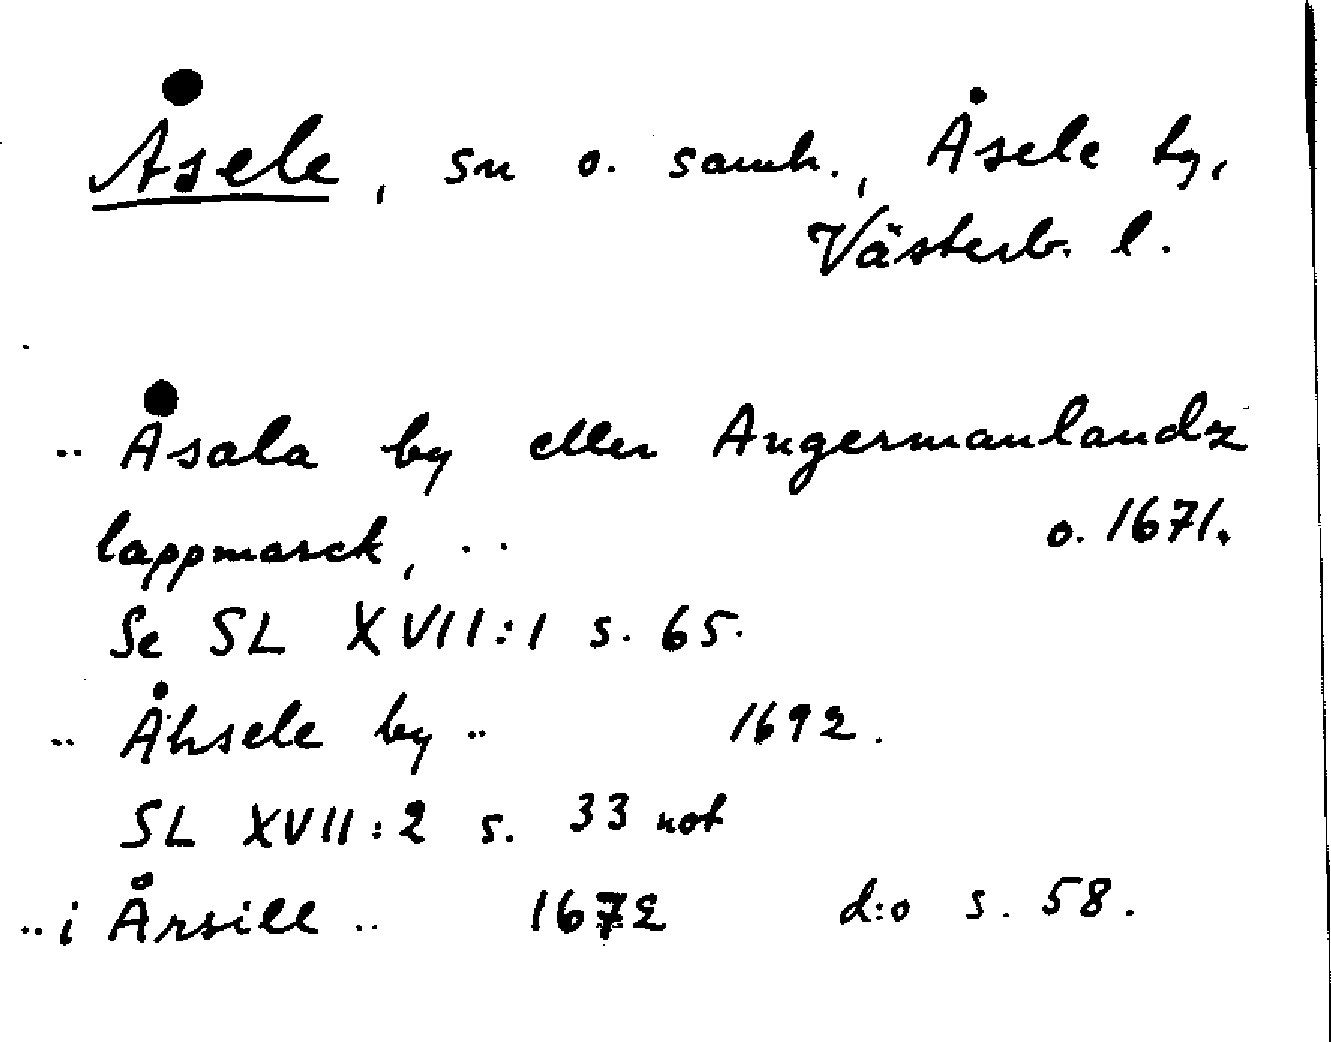 Åsele, sn o. samh., Åsele lg,
Västerb. l.
.. Åsala by eller Angermanlandz
lappmarck, .. o. 1671.
Se SL XVII:1 s. 65.
.. Åhsele by .. 1692.
SL XVII:2 s. 33 not
.. i Årsill .. 1672 d:o s. 58.